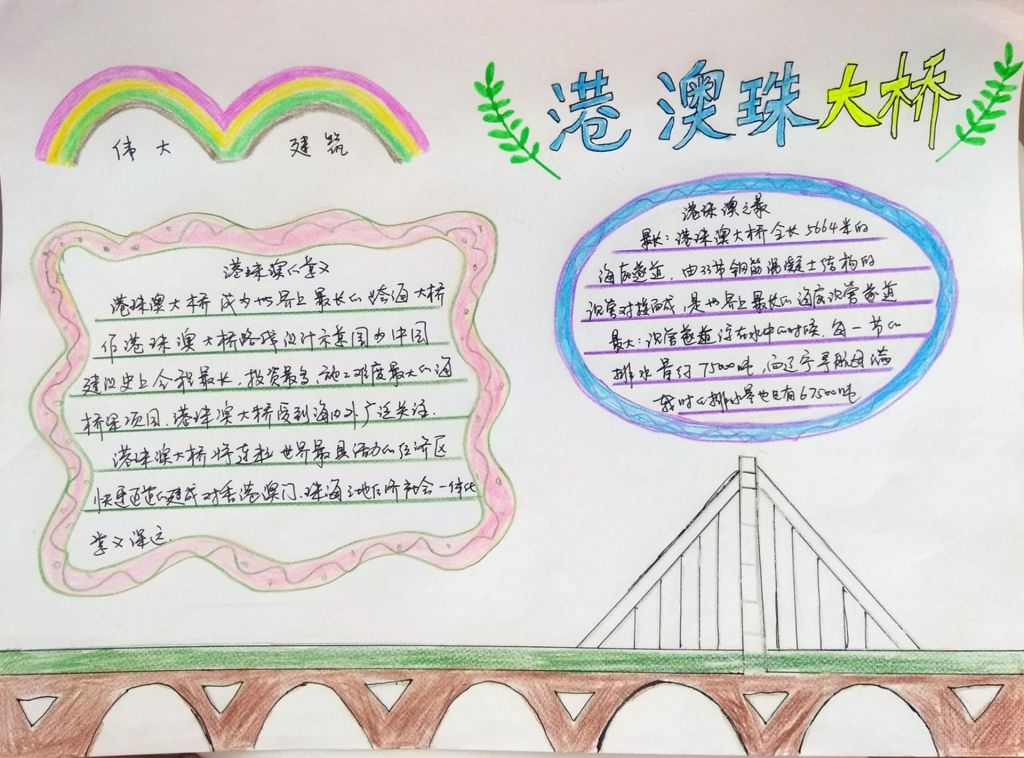 港澳珠大桥
伟大 建筑
港珠澳的意义
港珠澳大桥成为世界上最长的跨海大桥
作港珠澳大桥路线设计示意图为中国
建设史上今程最长、投资最多、施工难度最大的海
桥梁项目、港珠澳大桥受到海内外广泛关注.
港珠澳大桥将连起世界最具活力的经济区
快速通道的建成对香港澳门、珠海三地经济社会一体化
意义深远.
港珠澳之最
最长:港珠澳大桥全长5664米的
海底遂道,由33节钢筋混凝土结构的
沉管对接而成,是世界上最长的海底沉管遂道
最大:沉管遂道浮在水中的时候,每一节的
排水量约75000吨,而辽宁号航母满
载时的排水量也只有67500吨